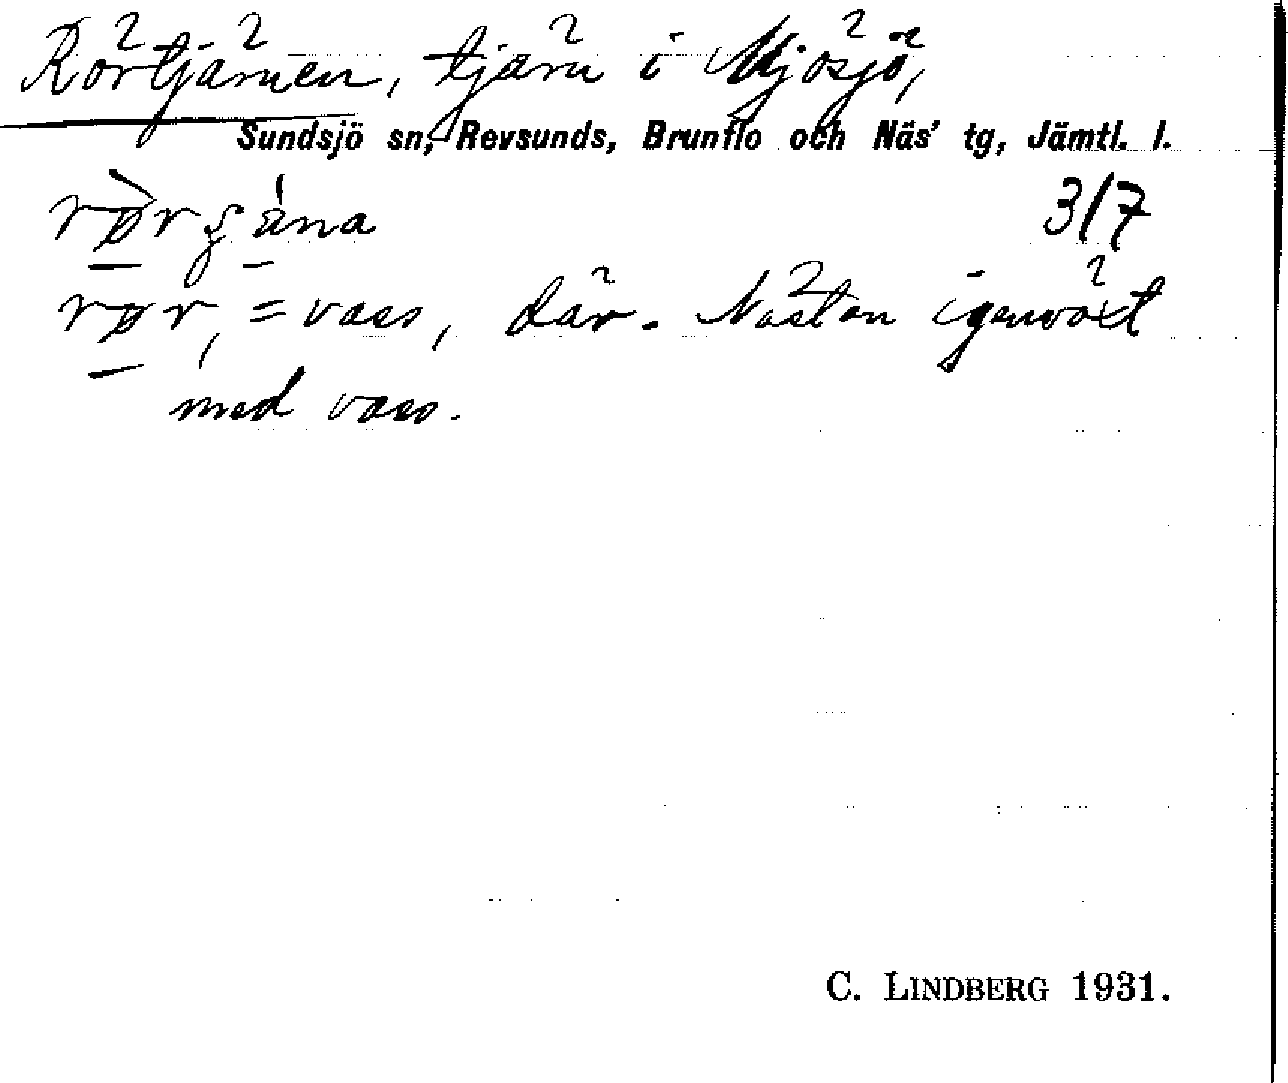 Rörtjärnen, tjärn i Mjösjö,
Sundsjö sn, Revsunds, Brunflo och Näs' tg, Jämtl. l.
3/7
= vass, där. Nästan igenväxt
med vass.
C. LINDBERG 1931.